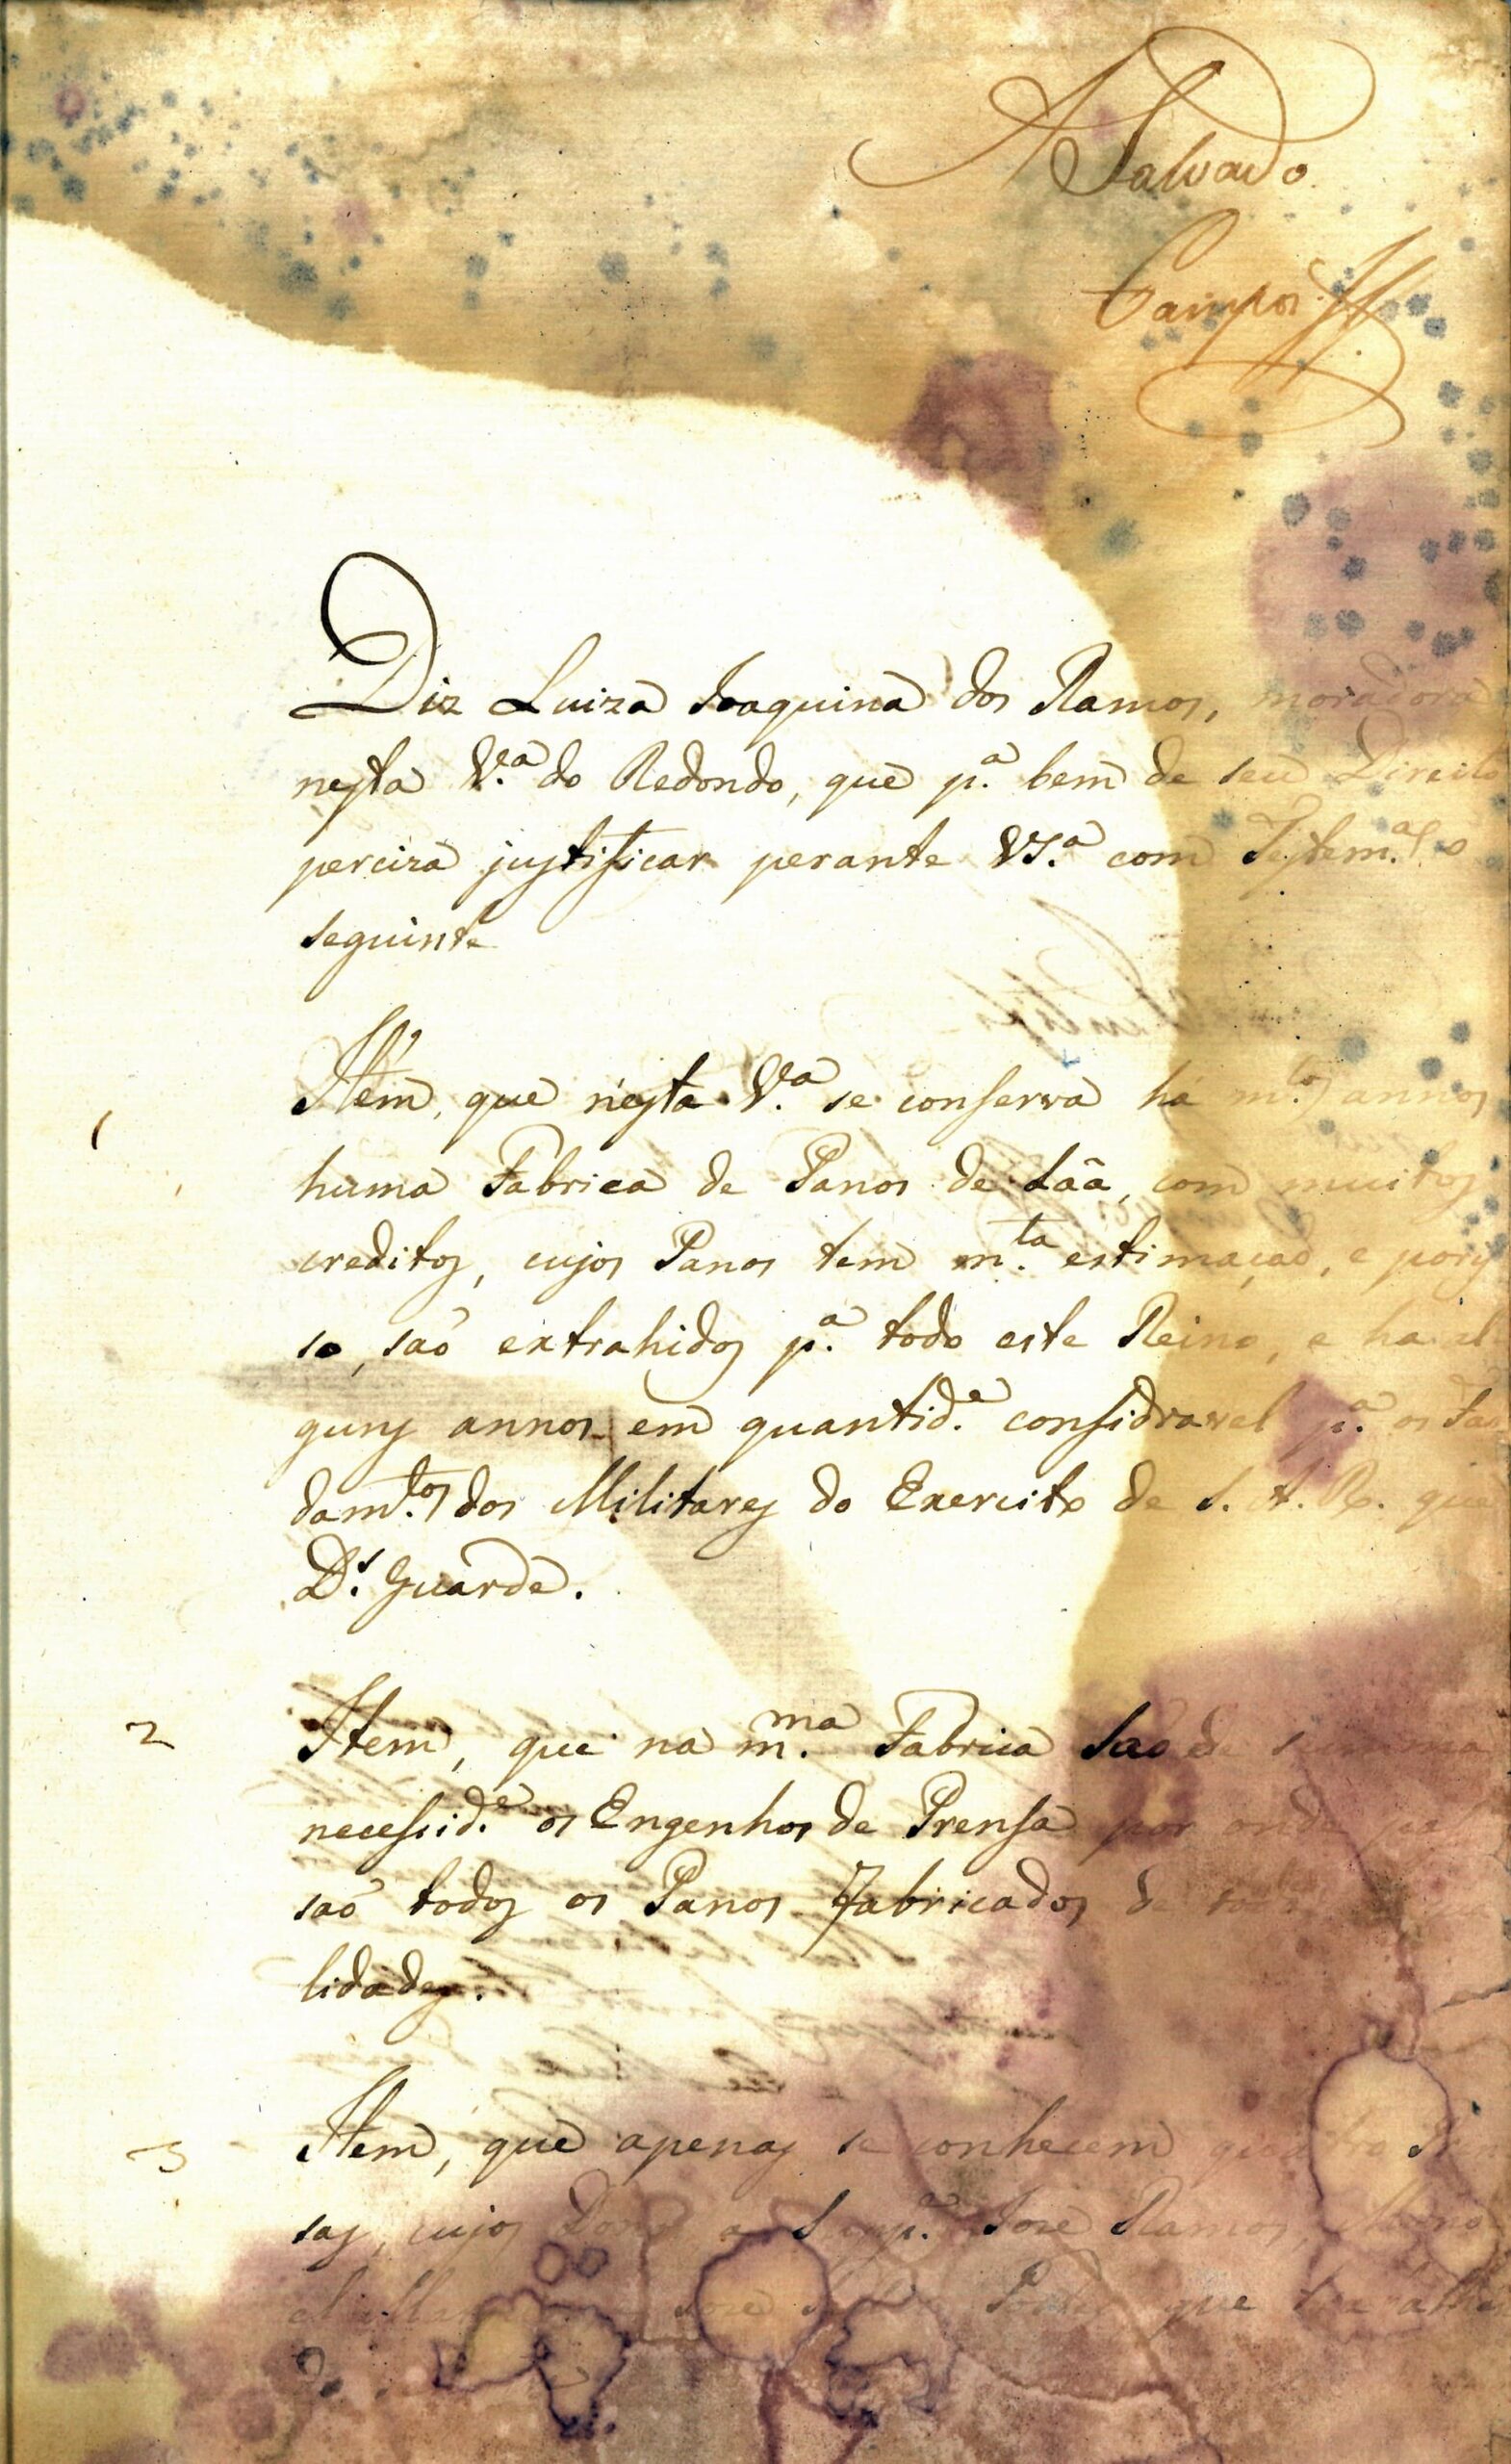 A Salvado
Campos
Diz Luiza Joaquina dos Ramos, moradora
nesta V.ª do Redondo, que p.ª bem de seu Direito
perciza justificar perante VS.ª com Testem.ªs o
seguinte
1
Item, que nesta V.ª se conserva há m.tos annos
huma Fabrica de Panos de Lãa, com muitos
creditos, cujos Panos tem m.ta estimaçaõ, e poriʃ
so, saõ extrahidos p.ª todo este Reino, e ha al
guns annos em quantid.e considravel p.ª os Far
dam.tos dos Militares do Exercito de S. A. R. que
D.s Guarde.
2
Item, que na m.ma Fabrica saõ de summa
neceʃsid.e os Engenhos de Prensa por onde
saõ todos os Panos Fabricados de
lidades.
3
Item, que apenas se conhecem quatro Pren
sas, cujos a Sup.e Jose Ramos,
Jose que